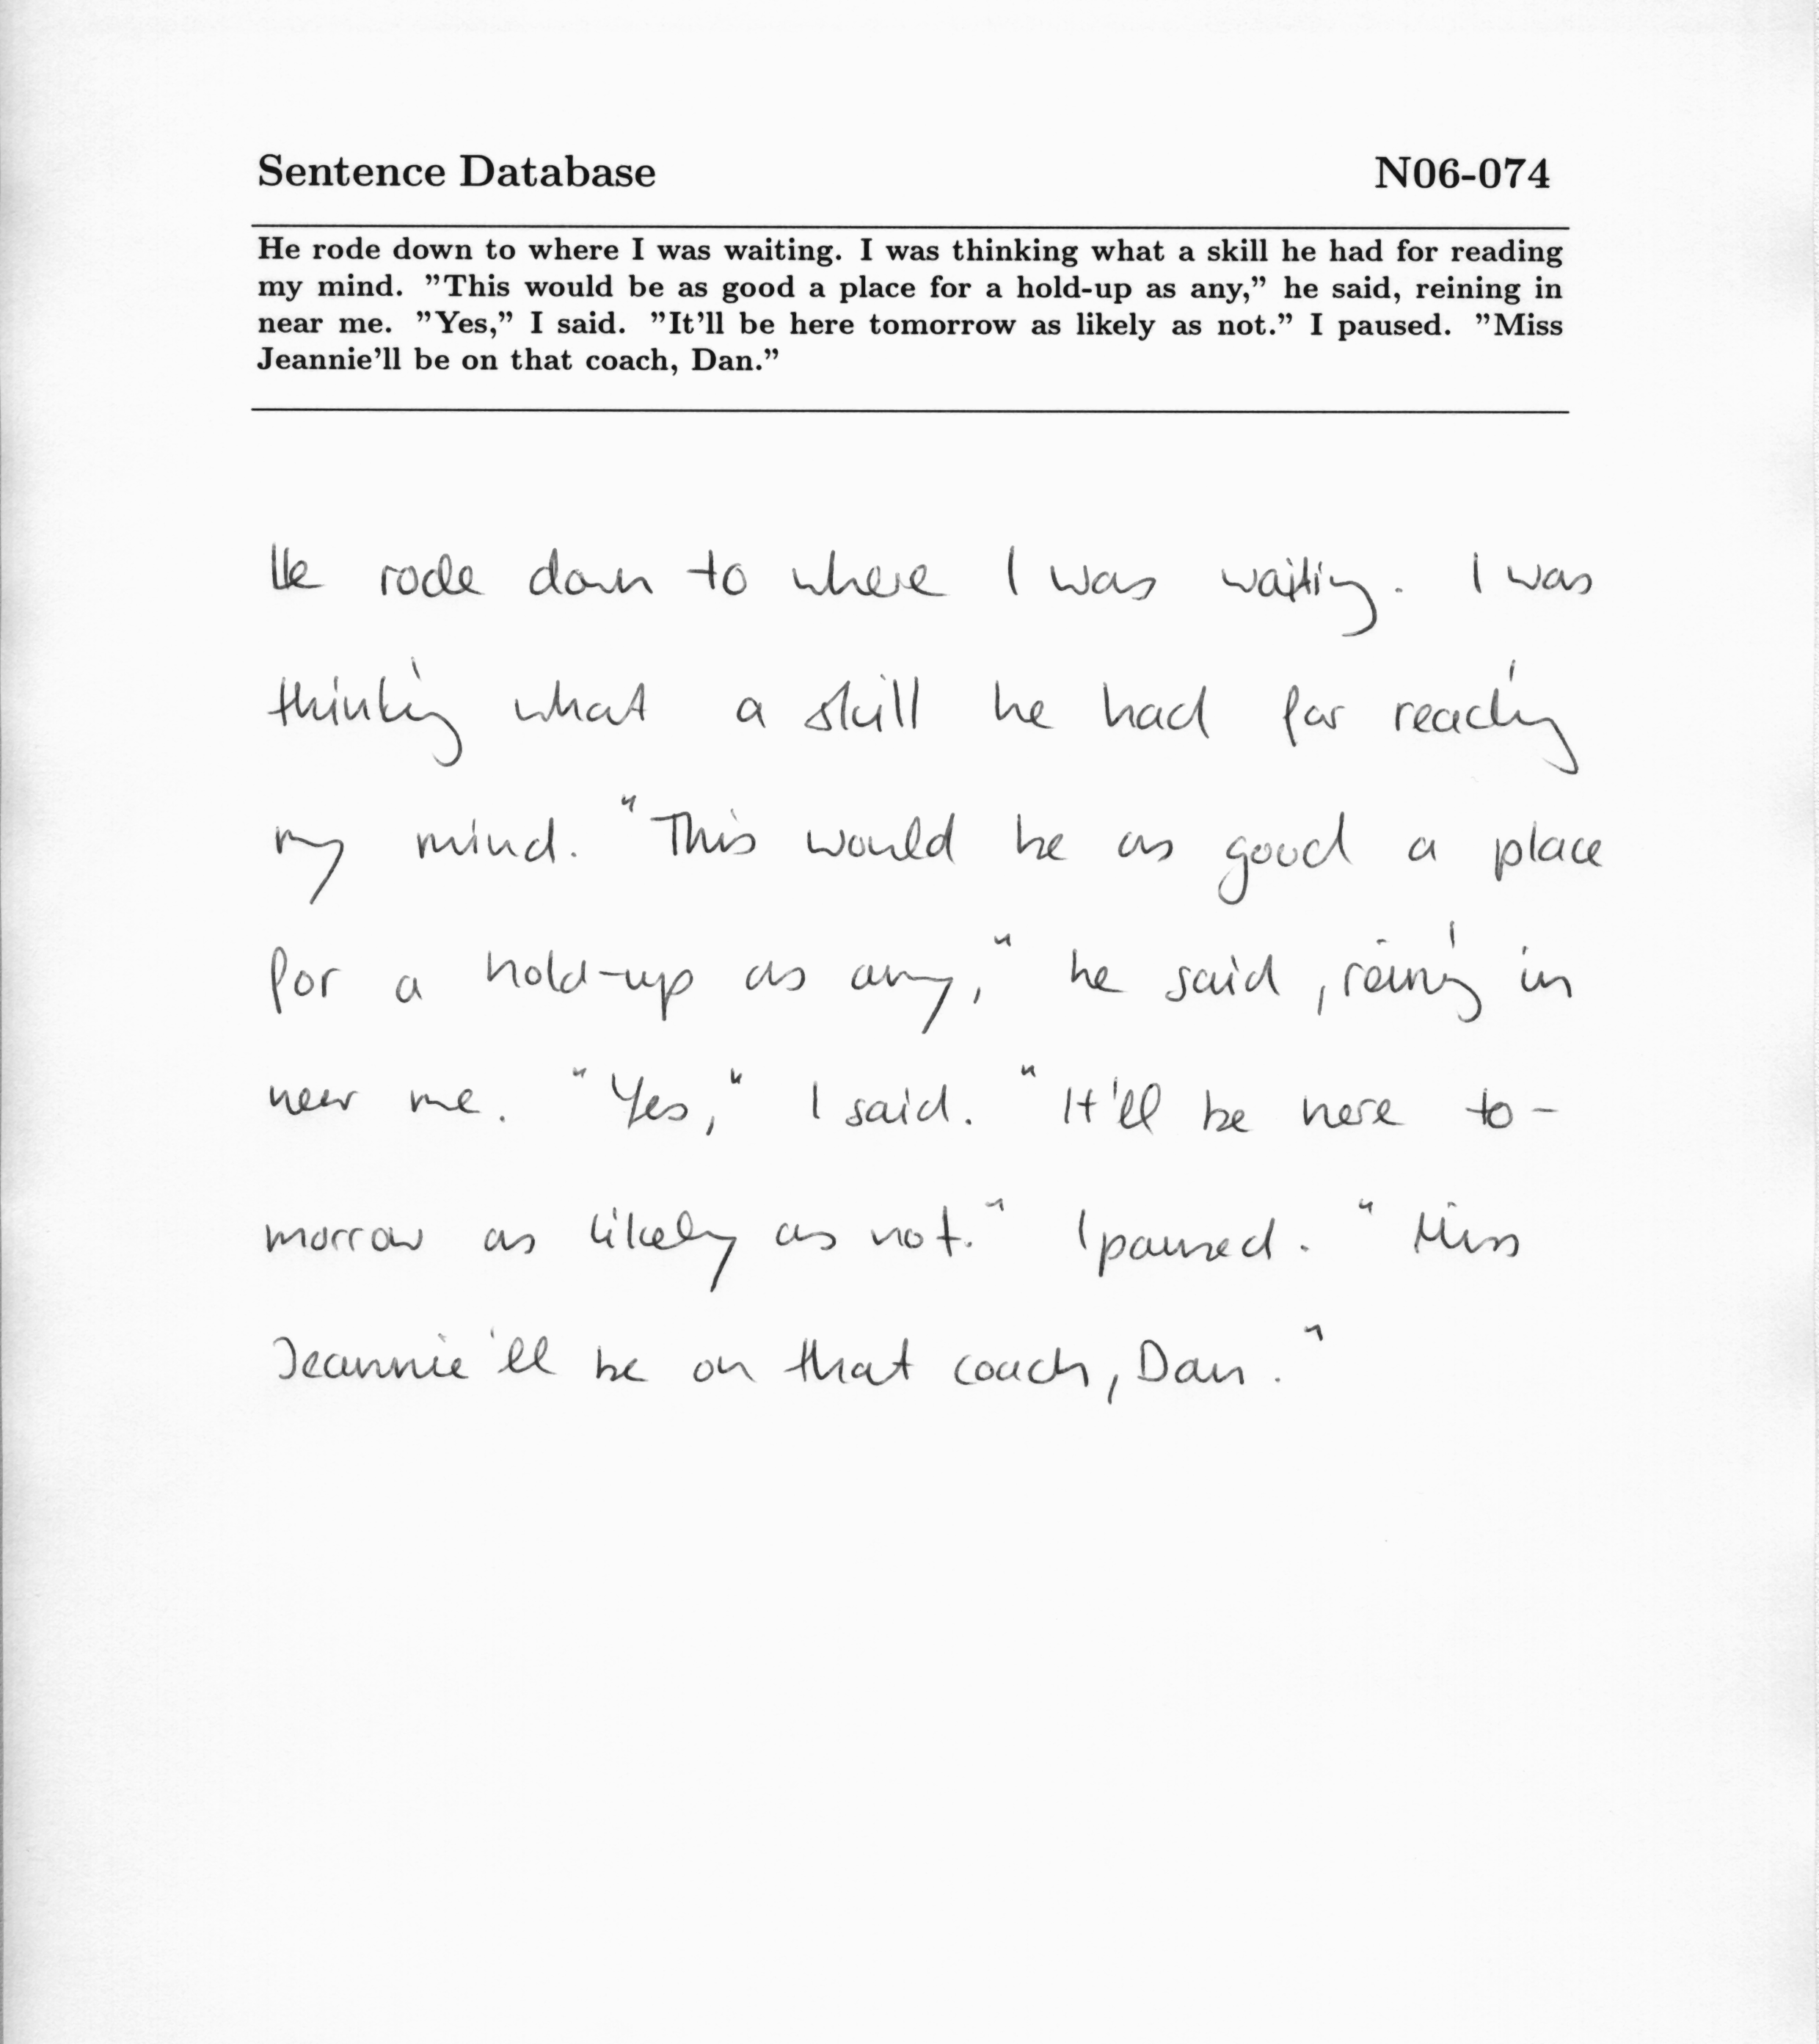 Sentence Database N06-074
He rode down to where I was waiting. I was thinking what a skill he had for reading
my mind. ”This would be as good a place for a hold-up as any,” he said, reining in
near me. ”Yes,” I said. ”It’ll be here tomorrow as likely as not.” I paused. ”Miss
Jeannie’ll be on that coach, Dan.”
He rode down to where I was waiting. I was
thinking what a skill he had for reading
my mind. "This would be as good a place
for a hold-up as any," he said, reining in
near me. "Yes," I said. "It'll be here to-
morrow as likely as not." I paused. "Miss
Jeannie'll be on that coach, Dan."